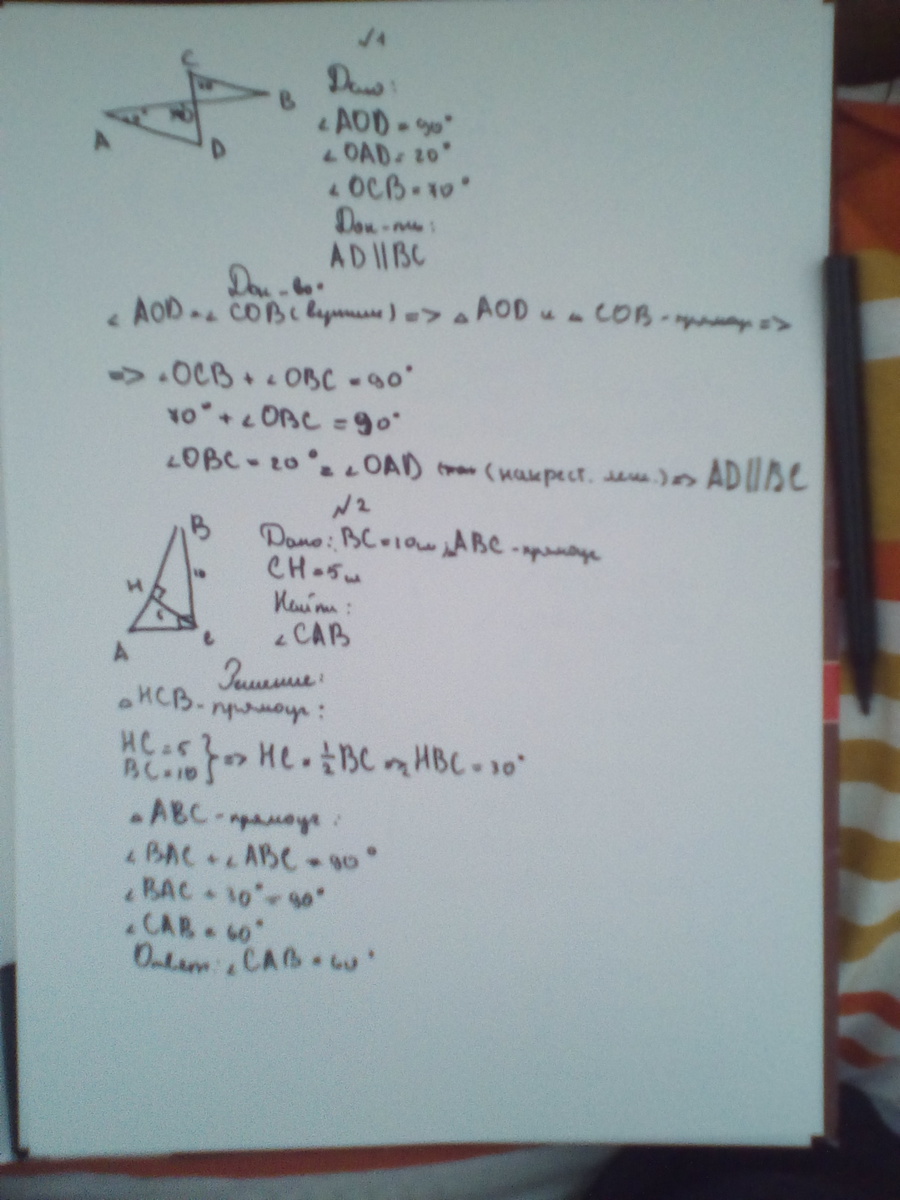 √1
C
70
B
20°
A
D
Дано:
∠AOD = 90°
∠OAD = 20°
∠OCB = 70°
Док-ть:
AD||BC
Док-во:
∠AOD = ∠COB (вертик) => △AOD и △COB - прямоуг =>
=> ∠OCB + ∠OBC = 90°
70° + ∠OBC = 90°
∠OBC = 20° = ∠OAD (накрест. леж.) => AD||BC
√2
B
10
H
5
A
C
Дано: BC = 10 см, △ABC - прямоуг
CH = 5 см
Найти:
∠CAB
Решение:
△HCB - прямоуг:
HC = 5
BC = 10 } => HC = 1/2 BC => ∠HBC = 30°
△ABC - прямоуг:
∠BAC + ∠ABC = 90°
∠BAC + 30° = 90°
∠CAB = 60°
Ответ: ∠CAB = 60°